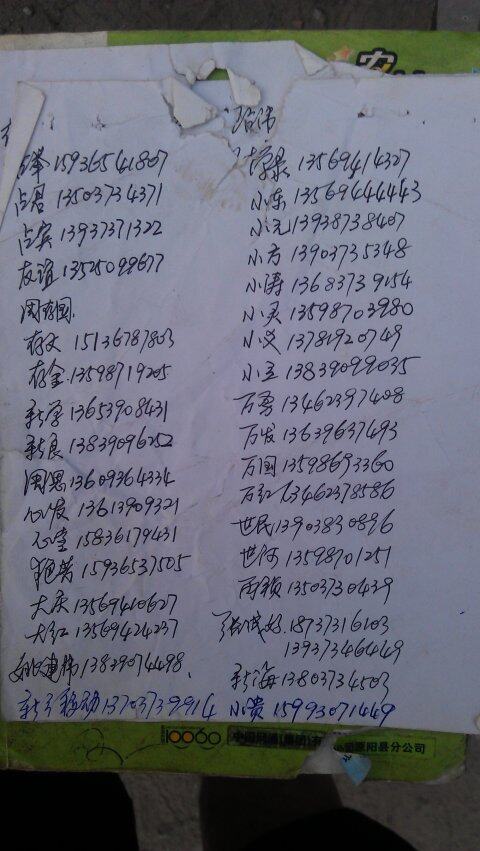 占举 15936541807
占君 13503734371
占宾 13937371322
友谊 13525099677
存文 15136787803
存金 13598719205
新学 13653908431
新良 13839096252
周恩 13609364334
心发 13613909321
心宝 15836179431
15936537505
大庆 13569410627
大红 13569424237
建伟 13839074498
移动 13703739914
13569414327
小东 13569444443
小元 13938738407
小方 13903735348
小涛 13683739154
小灵 13598703980
小义 13781920749
小立 13839099035
万雷 13462397408
万发 13639637493
万国 13598693360
万红 13462378586
世民 13903830896
世河 13598701251
13503730439
18737316103
13937346449
新海 13803734503
小贵 15993071449
10060 中国网通(集团)有 原阳县分公司